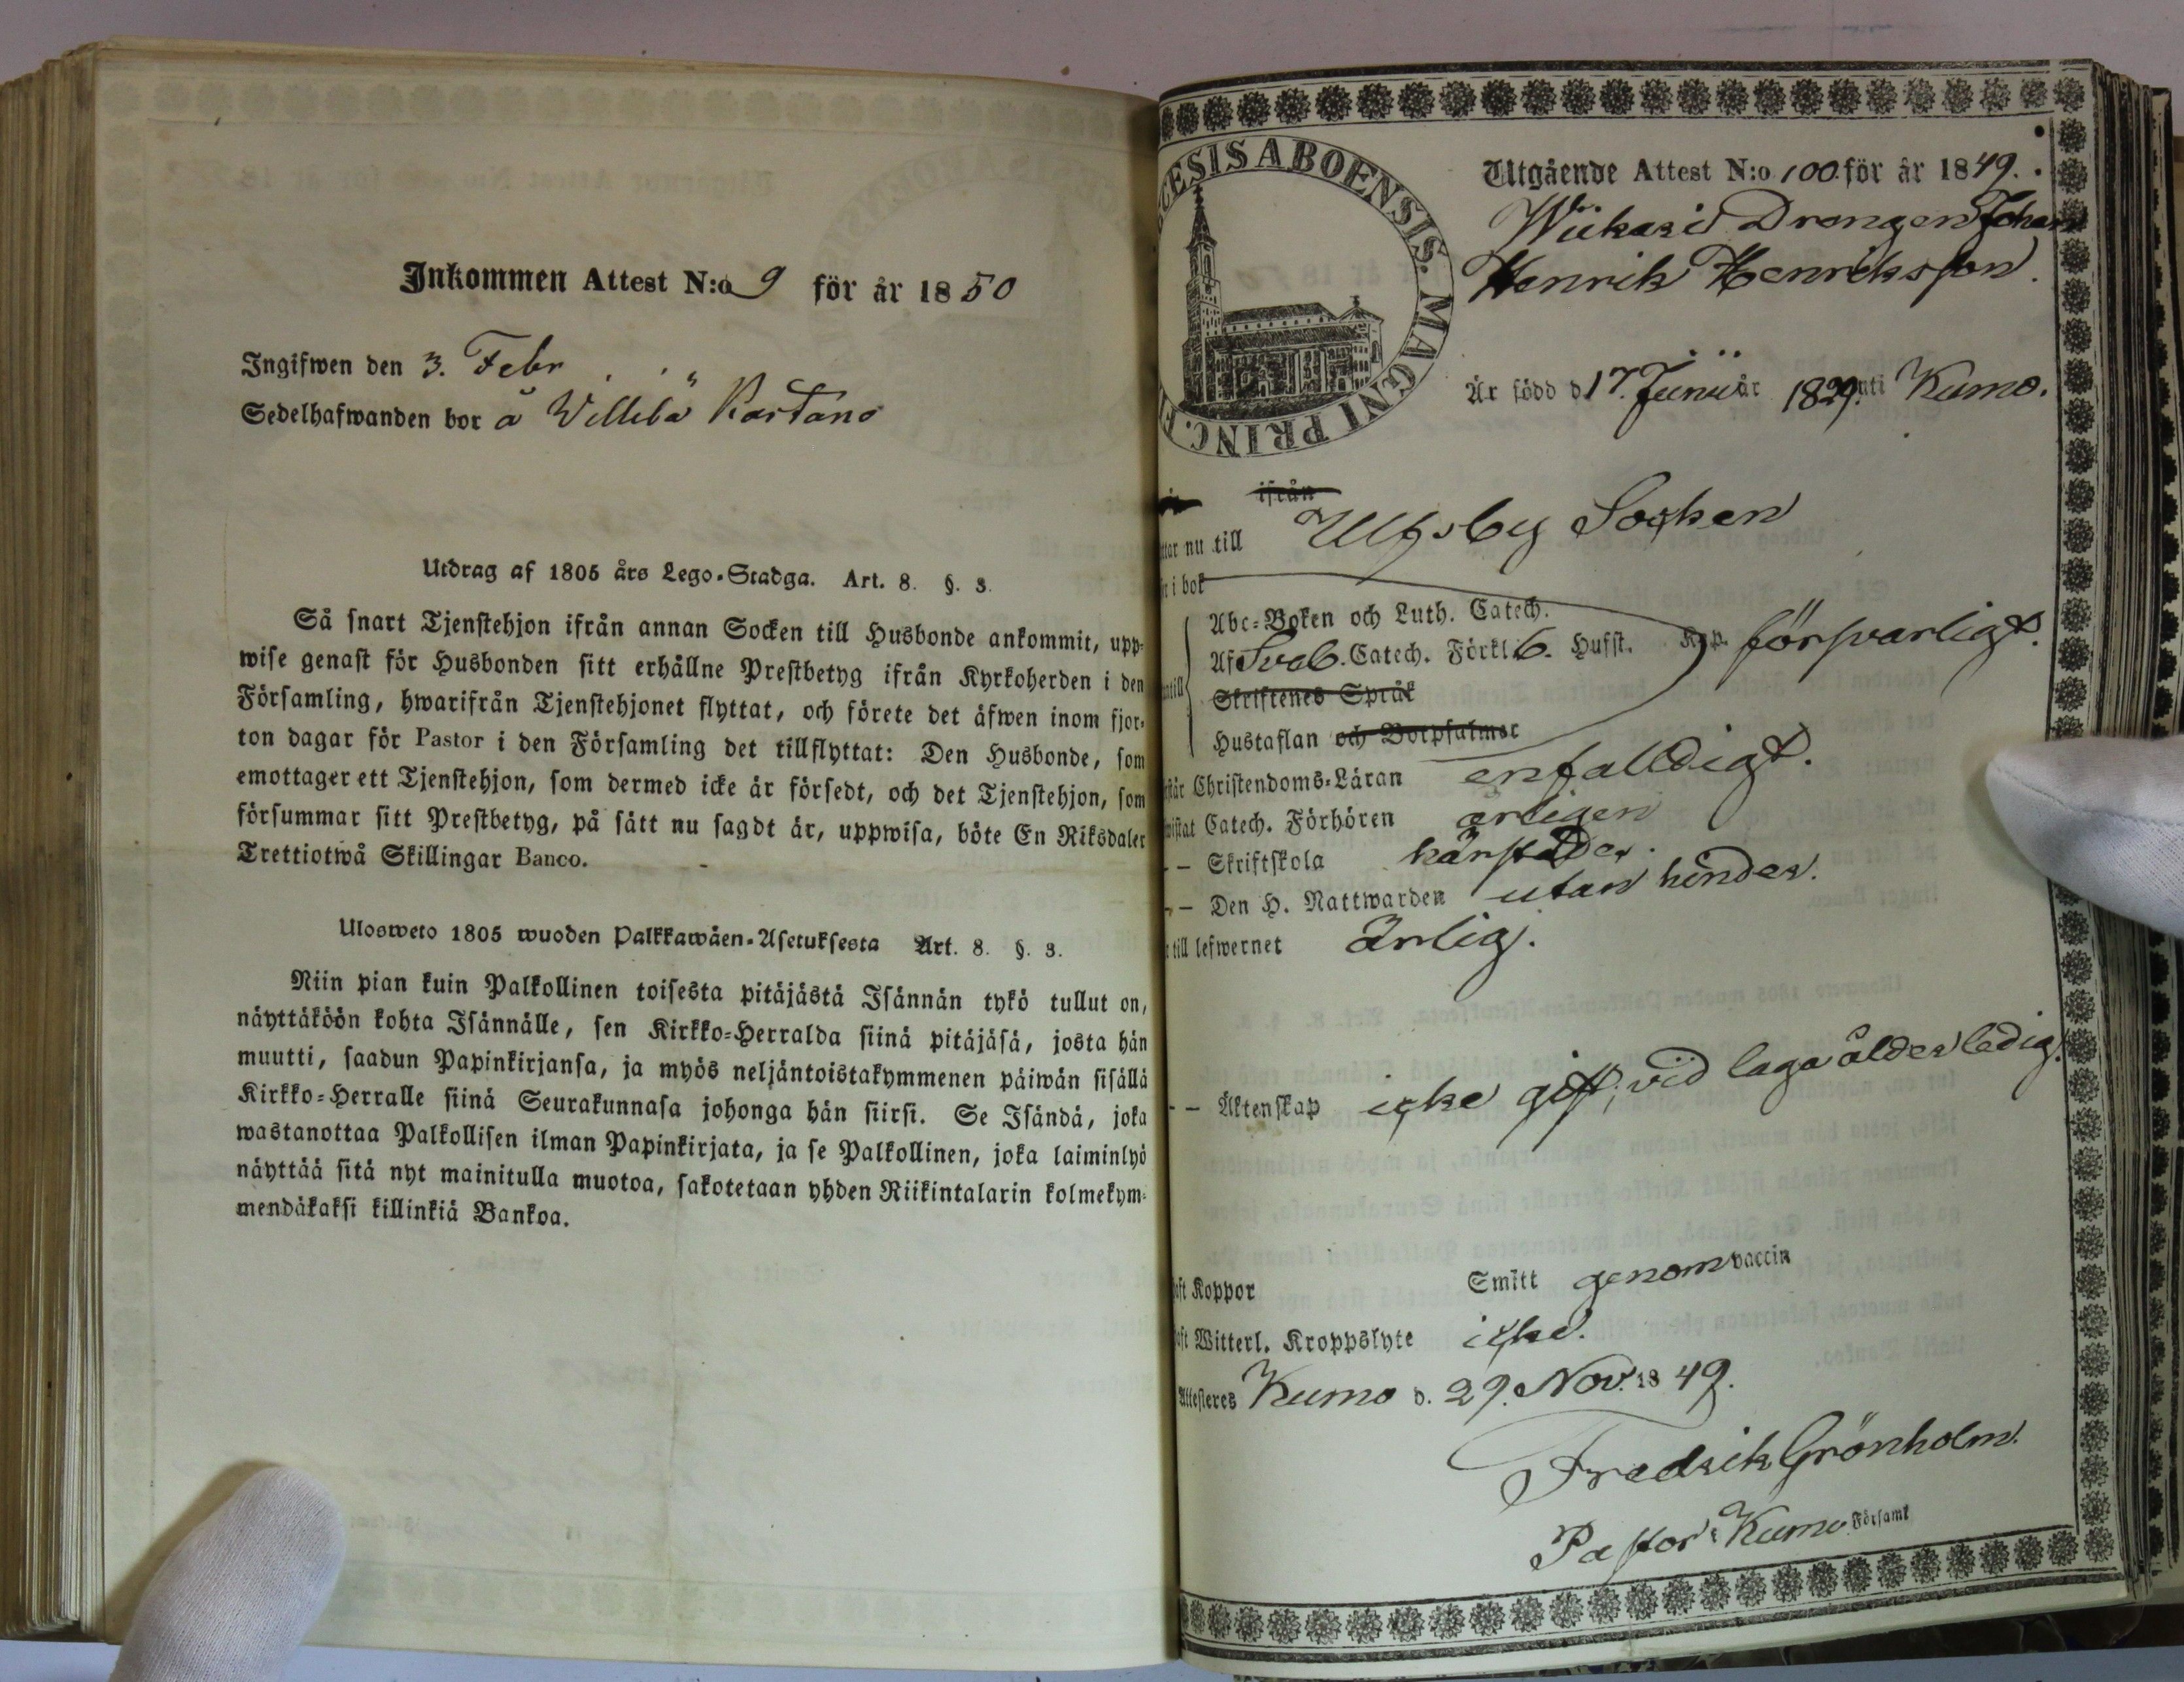 Inkommen Attest N:o 9 för år 1850
Ingifwen den 3. Febr
Sedelhafwanden bor å Villilä Kartano
Utdrag af 1805 års Lego-Stadga. Art. 8. §. 3.
Så snart Tjenstehjon ifrån annan Socken till Husbonde ankommit, upp-
wise genast för Husbonden sitt erhållne Prestbetyg ifrån Kyrkoherden i den
Församling, hwarifrån Tjenstehjonet flyttat, och förete det äfwen inom fjor-
ton dagar för Pastor i den Församling det tillflyttat: Den Husbonde, som
emottager ett Tjenstehjon, som dermed icke är försedt, och det Tjenstehjon, som
försummar sitt Prestbetyg, på sätt nu sagdt är, uppwisa, böte En Riksdaler
Trettiotwå Skillingar Banco.
Ulosweto 1805 wuoden Palkkawäen-Asetuksesta Art. 8. §. 3.
Niin pian kuin Palkollinen toisesta pitäjästä Isännän tykö tullut on,
näyttäköön kohta Isännälle, sen Kirkko-Herralda siinä pitäjäsä, josta hän
muutti, saadun Papinkirjansa, ja myös neljäntoistakymmenen päiwän sisällä
Kirkko-Herralle siinä Seurakunnasa johonga hän siirsi. Se Isändä, joka
wastanottaa Palkollisen ilman Papinkirjata, ja se Palkollinen, joka laiminlyö
näyttää sitä nyt mainitulla muotoa, sakotetaan yhden Riikintalarin kolmekym-
mendäkaksi killinkiä Bankoa.
ECESIS ABOENSIS. MAGNI PRINC. F
Utgående Attest N:o 100. för år 1849.
Drengen Johan
Henrik Henriksson.
Är född d 17. Junii år 1829. uti Kumo.
ifrån
ttar nu till Ulfsby Socken
r i bok
Abc-Boken och Luth. Catech.
Af Sveb. Catech. Förkl. 6. Hufst. Kap. försvarligt.
Skriftenes Språk
Hustaflan och Botpsalmer
står Christendoms-Läran enfaldigt.
wistat Catech. Förhören årligen
– – Skriftskola härstädes.
– – Den H. Nattwarden utan hinder.
till lefwernet ärlig.
– – Äktenskap icke gift, vid laga ålder ledig.
aft Koppor Smitt genom vaccin
aft Witterl. Kroppslyte icke.
Attesteres Kumo d. 29. Nov. 1849.
Fredrik Grönholm.
Pastor i Kumo Församl